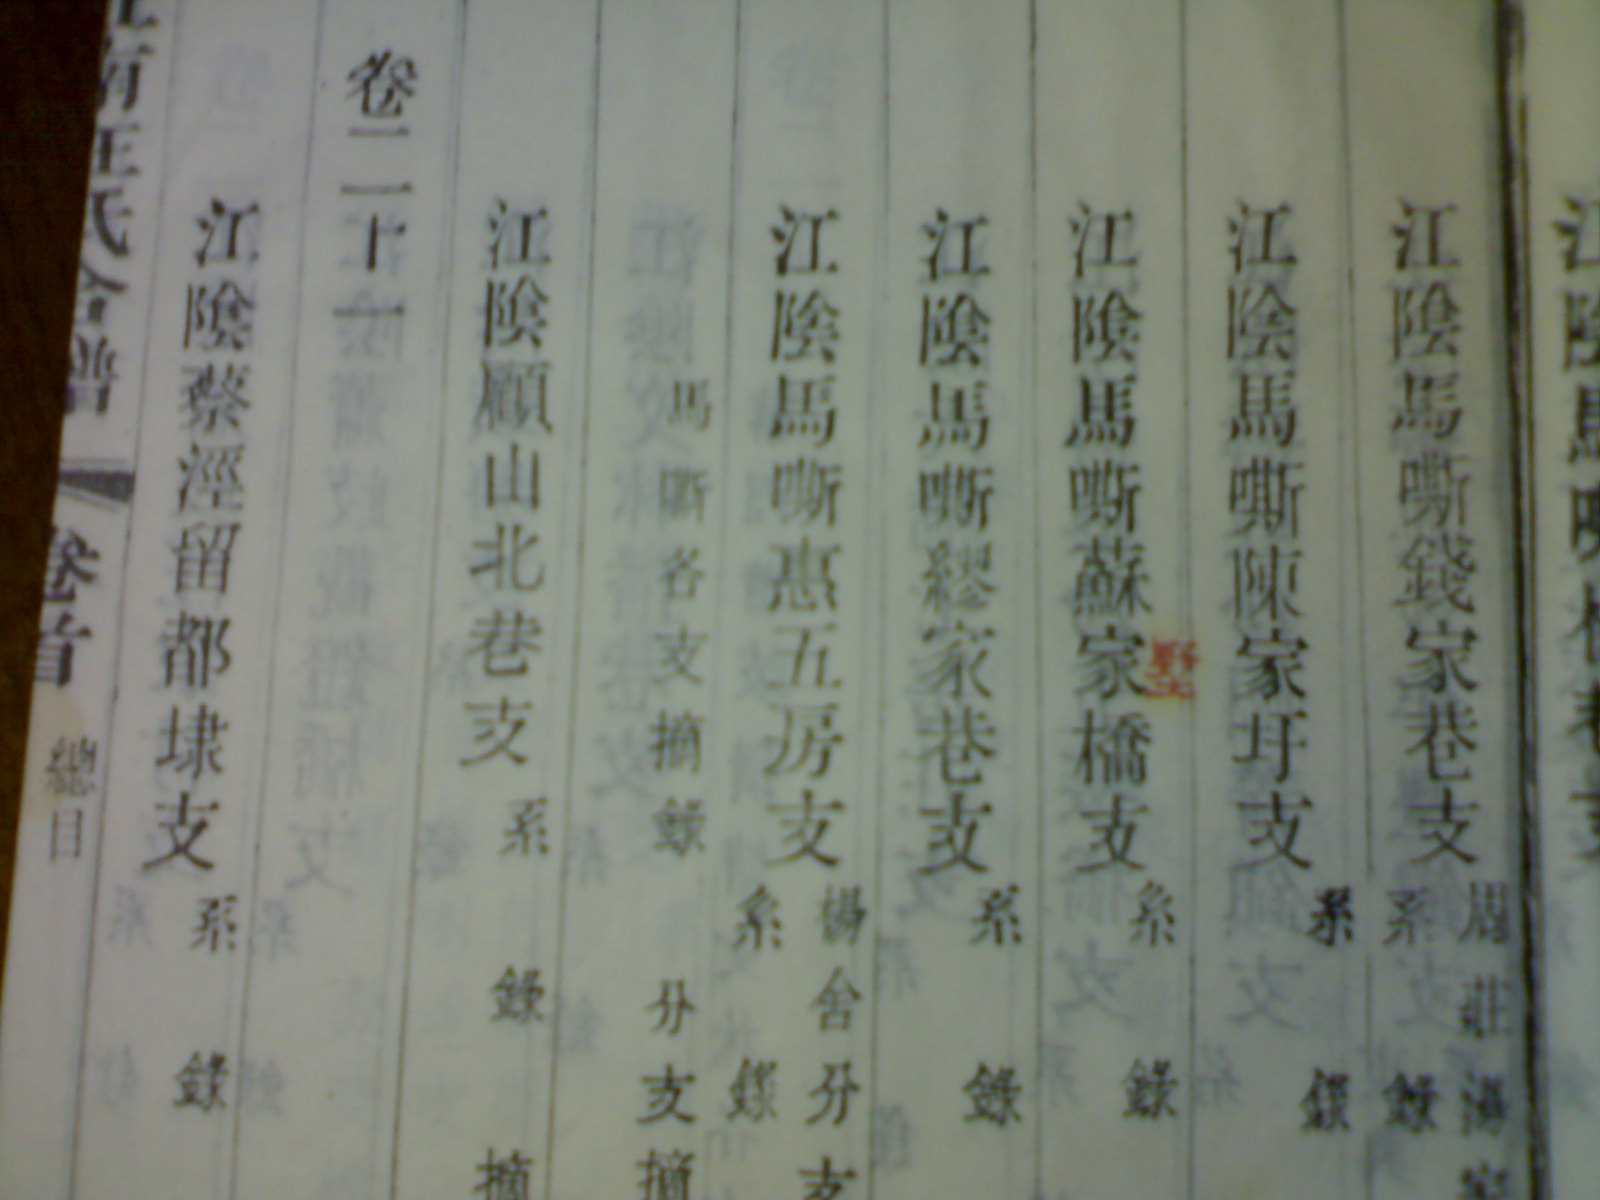 江陰馬嘶錢家巷支
周莊
系錄
江陰馬嘶陳家圩支
系錄
江陰馬嘶蘇家橋支
墅
系錄
江陰馬嘶繆家巷支
系錄
江陰馬嘶惠五房支
楊舍分支
系錄
馬嘶各支摘錄
分支摘
江陰顧山北巷支
系錄摘
卷二十一
江陰蔡涇留都埭支
系錄
江南王氏合譜 卷首 總目